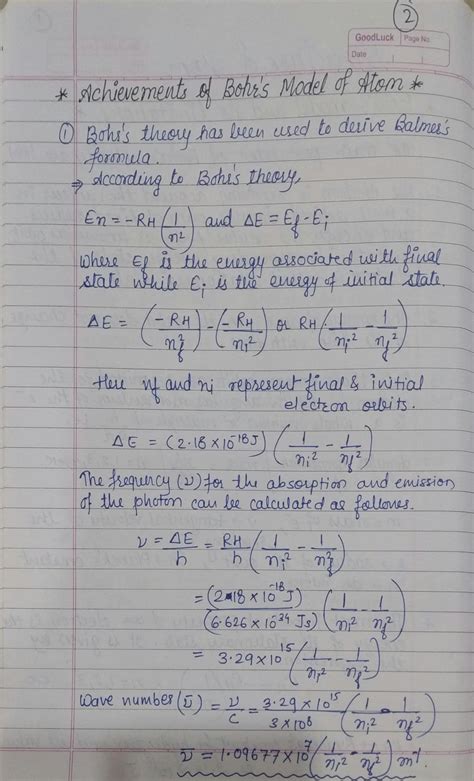 2
GoodLuck Page No.
Date
* Achievements of Bohr's Model of Atom *
① Bohr's theory has been used to derive Balmer's
formula.
⇒ According to Bohr's theory,
En = -RH (1/n²) and ΔE = Ef - Ei
where Ef is the energy associated with final
state while Ei is the energy of initial state.
ΔE = (-RH/nf²) - (-RH/ni²) or RH (1/ni² - 1/nf²)
Here nf and ni represent final & initial
electron orbits.
ΔE = (2.18 × 10⁻¹⁸ J) (1/ni² - 1/nf²)
The frequency (ν) for the absorption and emission
of the photon can be calculated as follows.
ν = ΔE/h = RH/h (1/ni² - 1/nf²)
= (2.18 × 10⁻¹⁸ J)/(6.626 × 10⁻³⁴ Js) (1/ni² - 1/nf²)
= 3.29 × 10¹⁵ (1/ni² - 1/nf²)
Wave number (ν̄) = ν/c = 3.29 × 10¹⁵/3 × 10⁸ (1/ni² - 1/nf²)
ν̄ = 1.09677 × 10⁷ (1/ni² - 1/nf²) m⁻¹